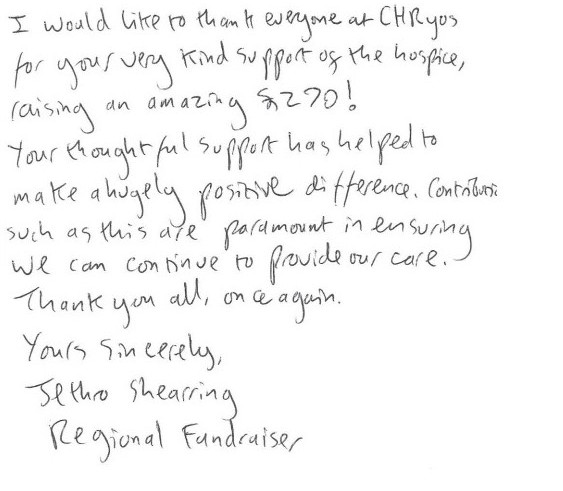 I would like to thank everyone at CHRyos
for your very kind support of the hospice,
raising an amazing £270!
Your thoughtful support has helped to
make a hugely positive difference. Contributi
such as this are paramount in ensuring
we can continue to provide our care.
Thank you all, once again.
Yours Sincerely,
Jethro Shearring
Regional Fundraiser